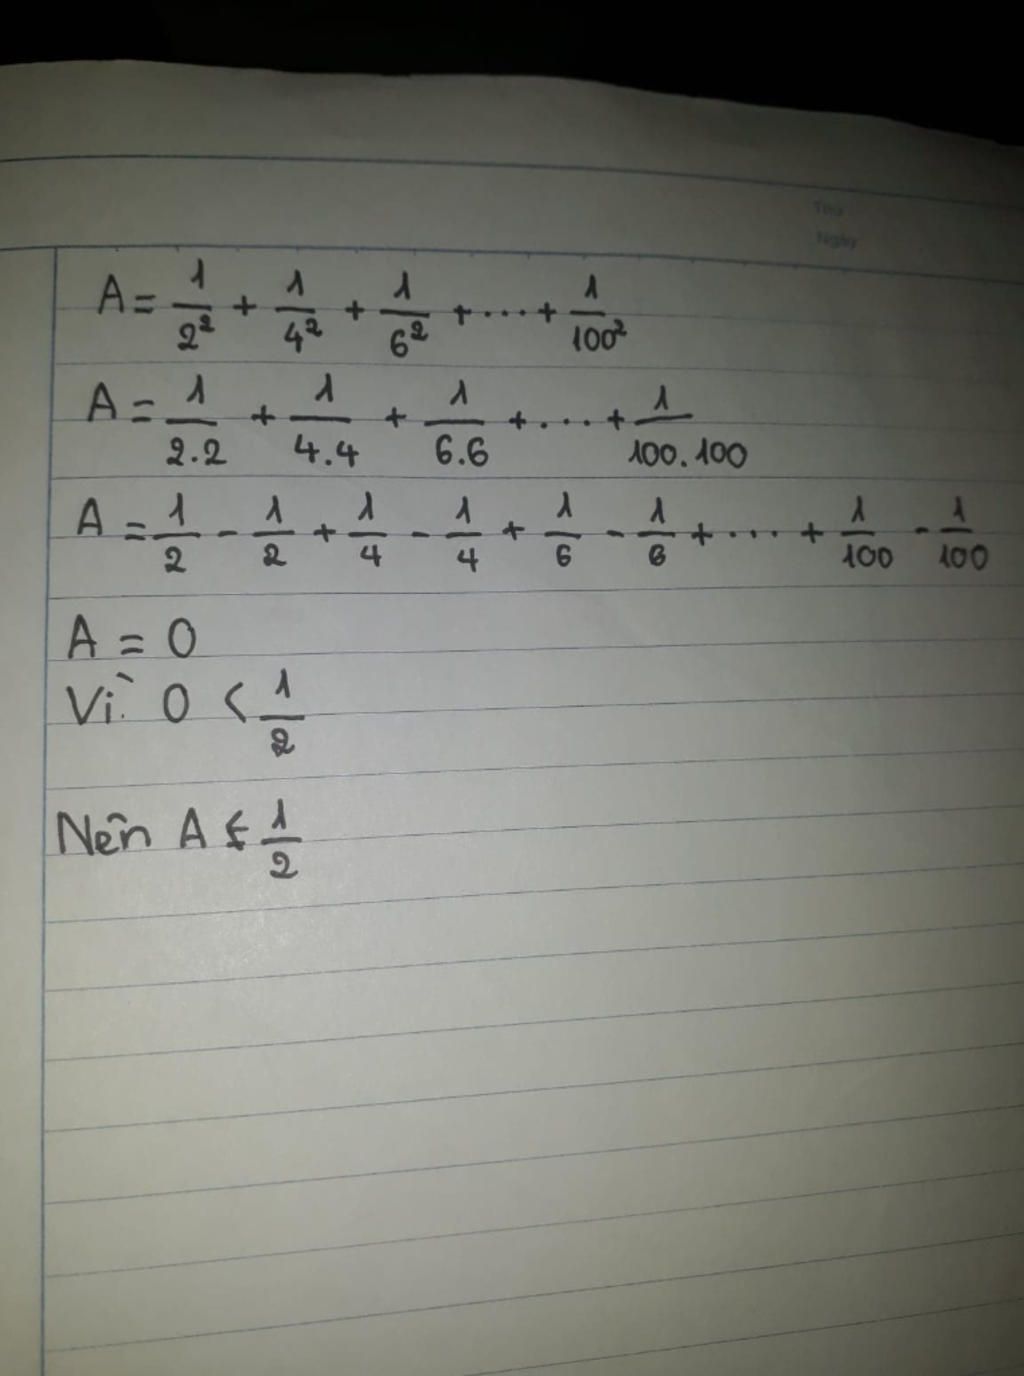 Thứ
Ngày
A = 1/2² + 1/4² + 1/6² + ... + 1/100²
A = 1/2.2 + 1/4.4 + 1/6.6 + ... + 1/100.100
A = 1/2 - 1/2 + 1/4 - 1/4 + 1/6 - 1/6 + ... + 1/100 - 1/100
A = 0
Vì 0 < 1/2
Nên A < 1/2